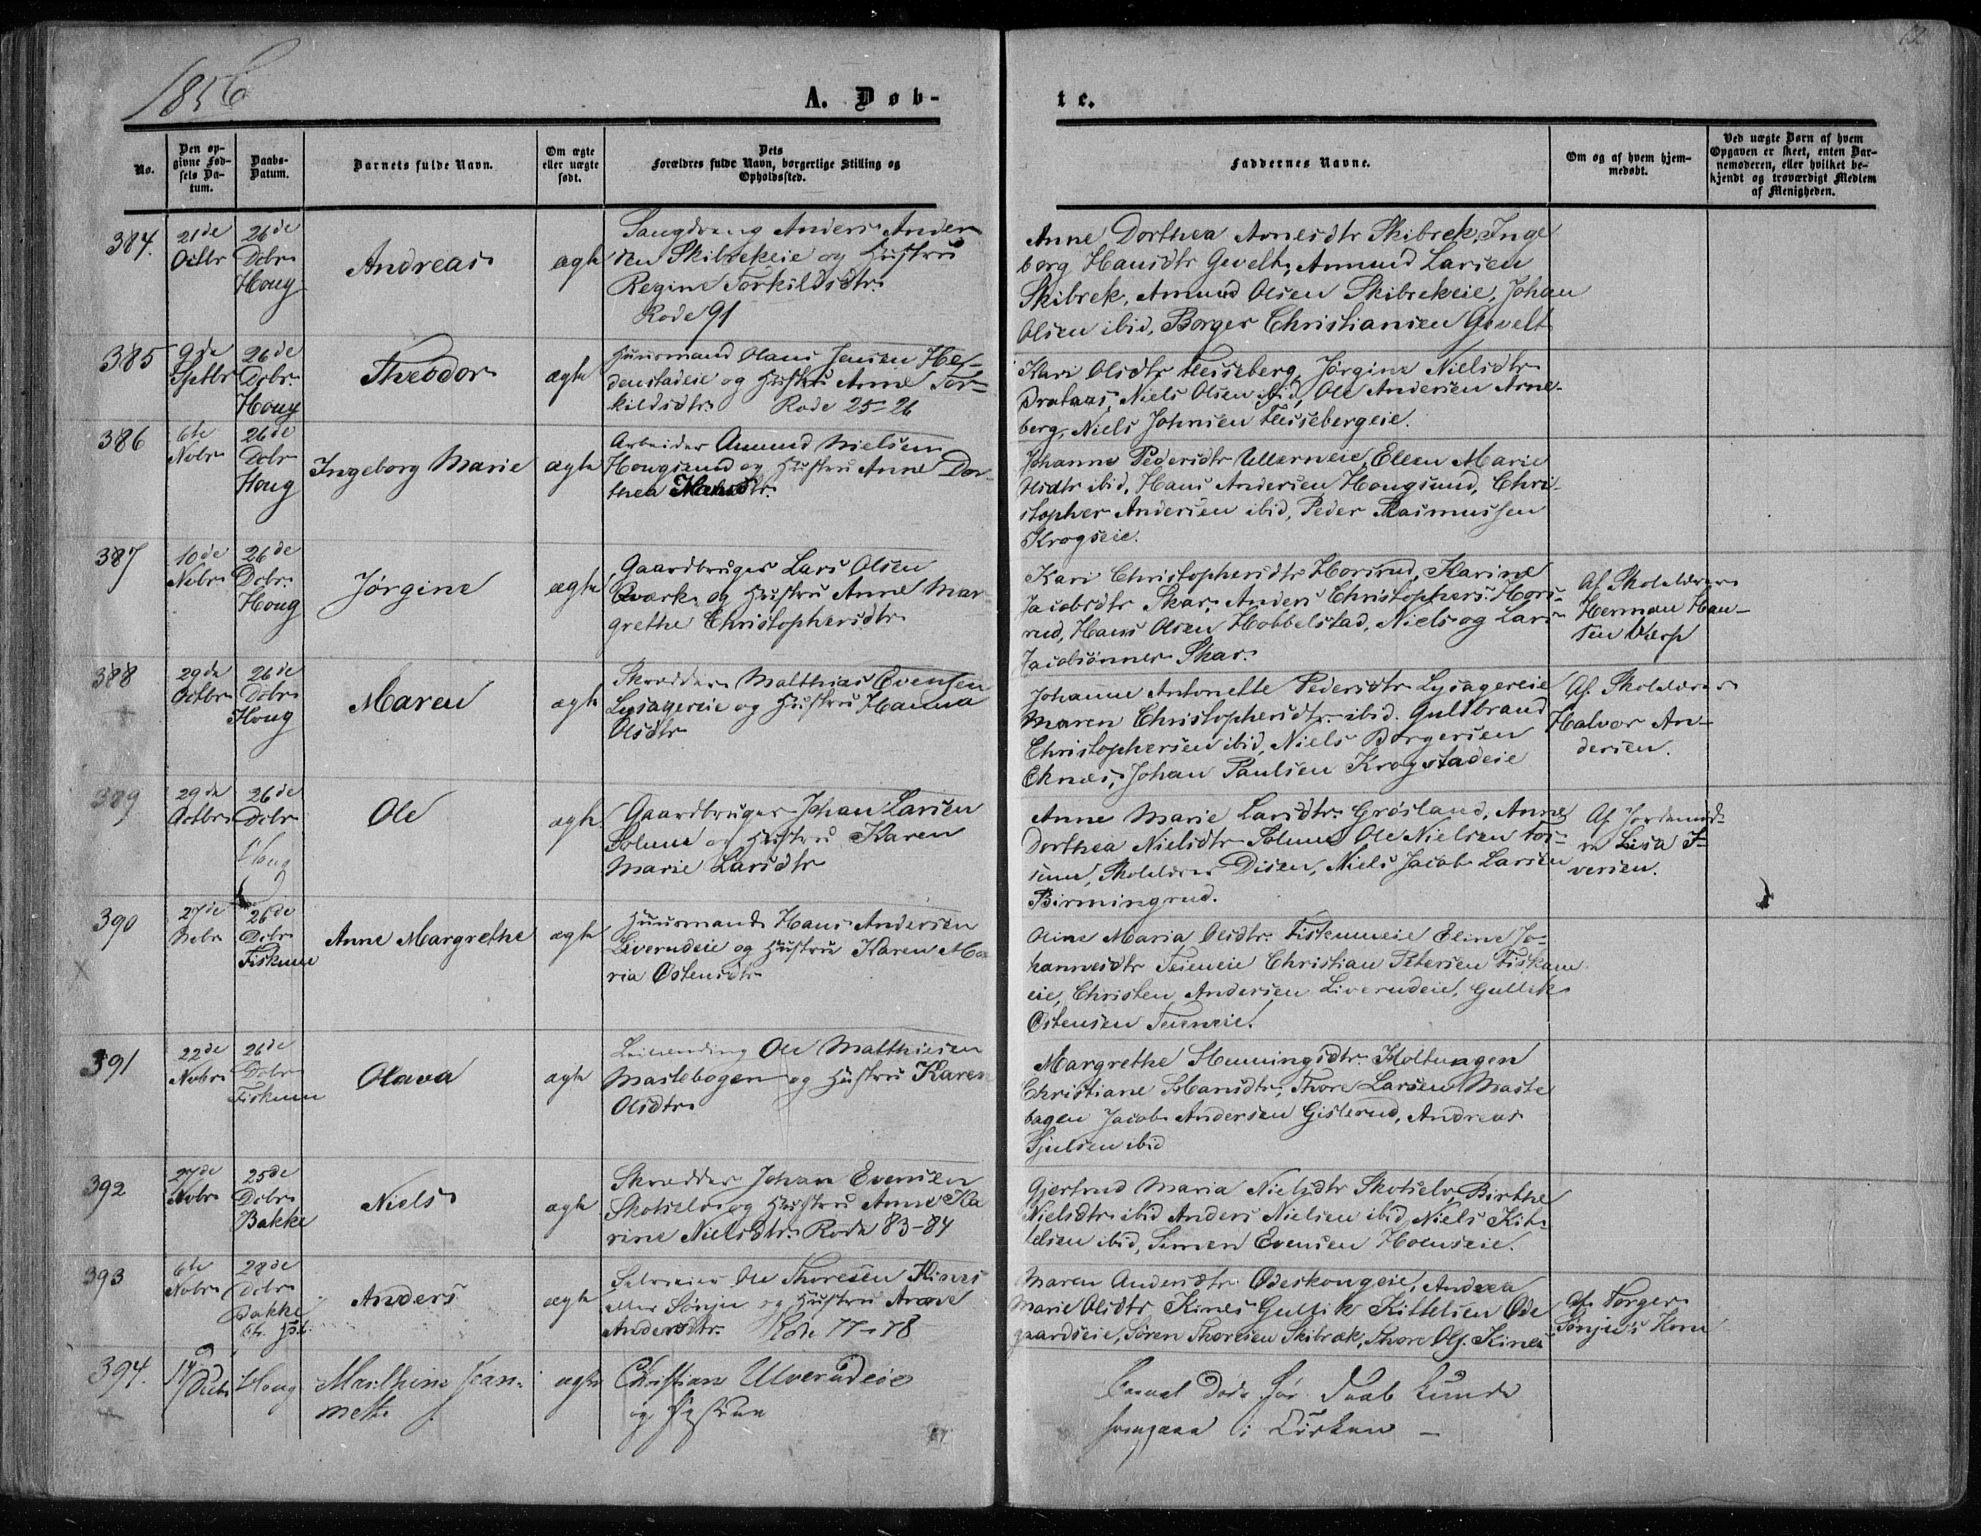 1856
62
A. Døb-
te.
No.
Den op-
givne Fød-
sels Da-
tum.
Daabs-
Datum.
Barnets fulde Navn.
Om ægte
eller uægte
født.
Dets
Forældres fulde Navn, borgerlige Stilling og
Opholdssted.
Faddernes Navne.
Om og af hvem hjem-
medøbt.
Ved uægte Børn af hvem
Opgaven er skeet, enten Bar-
nemoderen, eller hvilket be-
kjendt og troværdigt Medlem
af Menigheden.
384.
21de
Octbr
26de
Dcbr
Houg
Andreas
ægte
Anders Ander
sen Skibrekeie og Hustru
Regine Torkildsdtr
Rode 91
Anne Dorthea Arnesdtr Skibrek, Inge
borg Hansdtr Gevelt, Amund Larsen
Skibrek, Amund Olsen Skibrekeie, Johan
Olsen ibid, Borger Christiansen Gevelt
385
9de
Sptbr
26de
Dcbr.
Houg
Theodor
ægte
Huusmand Olaus Jensen He-
denstadeie og Hustru Anne Tor-
kildsdtr Rode 25-26
Kari Olsdtr Teiseberg, Jørgine Nielsdtr
Niels Olsen ibid, Ole Andersen Arne-
berg, Niels Johnsen Teisebergeie.
386
6te
Nobr
26de
Dcbr
Houg
Ingeborg Marie
ægte
Arbeider Amund Nielsen
Hougsund og Hustru Anne Dor-
thea Hansdtr.
Johanne Pedersdtr Ullerneie, Ellen Marie
Olsdtr ibid, Hans Andersen Hougsund, Chri-
stopher Andersen ibid, Peder Rasmussen
Krogseie.
387
10de
Nobr
26de
Dcbr.
Houg
Jørgine
ægte
Gaardbruger Lars Olsen
Qværk og Hustru Anne Mar
grethe Christophersdtr
Kari Christophersdtr Horsrud, Karine
Jacobsdtr Skar, Anders Christophers. Hors-
rud, Hans Olsen Hobbelstad, Niels og Lars
Jacobsønner Skar.
Af Skolelærer
Herman Han-
sen Verp
388
29de
Octbr
26de
Dcbr
Houg
Maren
ægte
Skrædder Matthias Evensen
Lysagereie og Hustru Hanna
Olsdtr
Johanne Antonette Pedersdtr Lysagereie
Maren Christophersdtr ibid. Guldbrand
Christophersen ibid, Niels Borgersen
Eknæs, Johan Paulsen Krogstadeie
Af Skolelærer
Halvor An-
dersen.
389
29de
Octbr
26de
Dcbr
Houg
Ole
ægte
Gaardbruger Johan Larsen
Solum og Hustru Karen
Marie Larsdtr
Anne Marie Larsdtr Grøsland, Anne
Dorthea Nielsdtr Solum Ole Nielsen Fos-
sum, Skolelærer Disen, Niels Jacob Larsen
Birmingrud.
Af Jordemod-
re Lisa I-
versen.
390
27de
Nobr
26de
Dcbr
Fiskum
Anne Margrethe
ægte
Huusmand Hans Andersen
Liverudeie og Hustru Karen Ma
ria Ostensdtr
Oline Maria Olsdtr. Fiskumeie Eline Jo-
hannesdtr Teieneie Christian Petersen Fiskum
eie, Christen Andersen Liverudeie, Gullik
Ostensen Teieneie.
391
22de
Nobr
26de
Dcbr
Fiskum
Olava
ægte
Leilending Ole Matthiesen
Mastebogen og Hustru Karen
Olsdtr
Margrethe Henningsdtr Holtungen
Christiane Hansdtr, Thore Larsen Maste
bogen Jacob Andersen Gislerud, Andreas
ibid
392
27de
Nobr
25de
Dcbr
Bakke
Niels
ægte
Skrædder Johan Evensen
Skotselv og Hustru Anne Ka
rine Nielsdtr Rode 83-84
Gjertrud Maria Nielsdtr Skotselv, Birthe
Nielsdtr ibid Anders Nielsen ibid, Niels Kit-
telsen ibid, Simen Evensen Hoenseie.
393
6te
Nobr
28de
Dcbr
Bakke
Anders
ægte
Selveier Ole Thoresen Kines
eller Sønju og Hustru Anne
Andersdtr Rode 77-78
Maren Andersdtr Ødeskougeie, Andrea
Marie Olsdtr Kines Gullik Kittelsen Øde
gaardseie, Søren Thoresen Skibræk, Thore Ols. Kines
Af Torger
Sønju's Kone
394.
Houg
Mathine Jean-
nette
ægte
Christian Ulverudeie
og Hustru
Baaret døde før Daab kunde
foregaae i Kirken